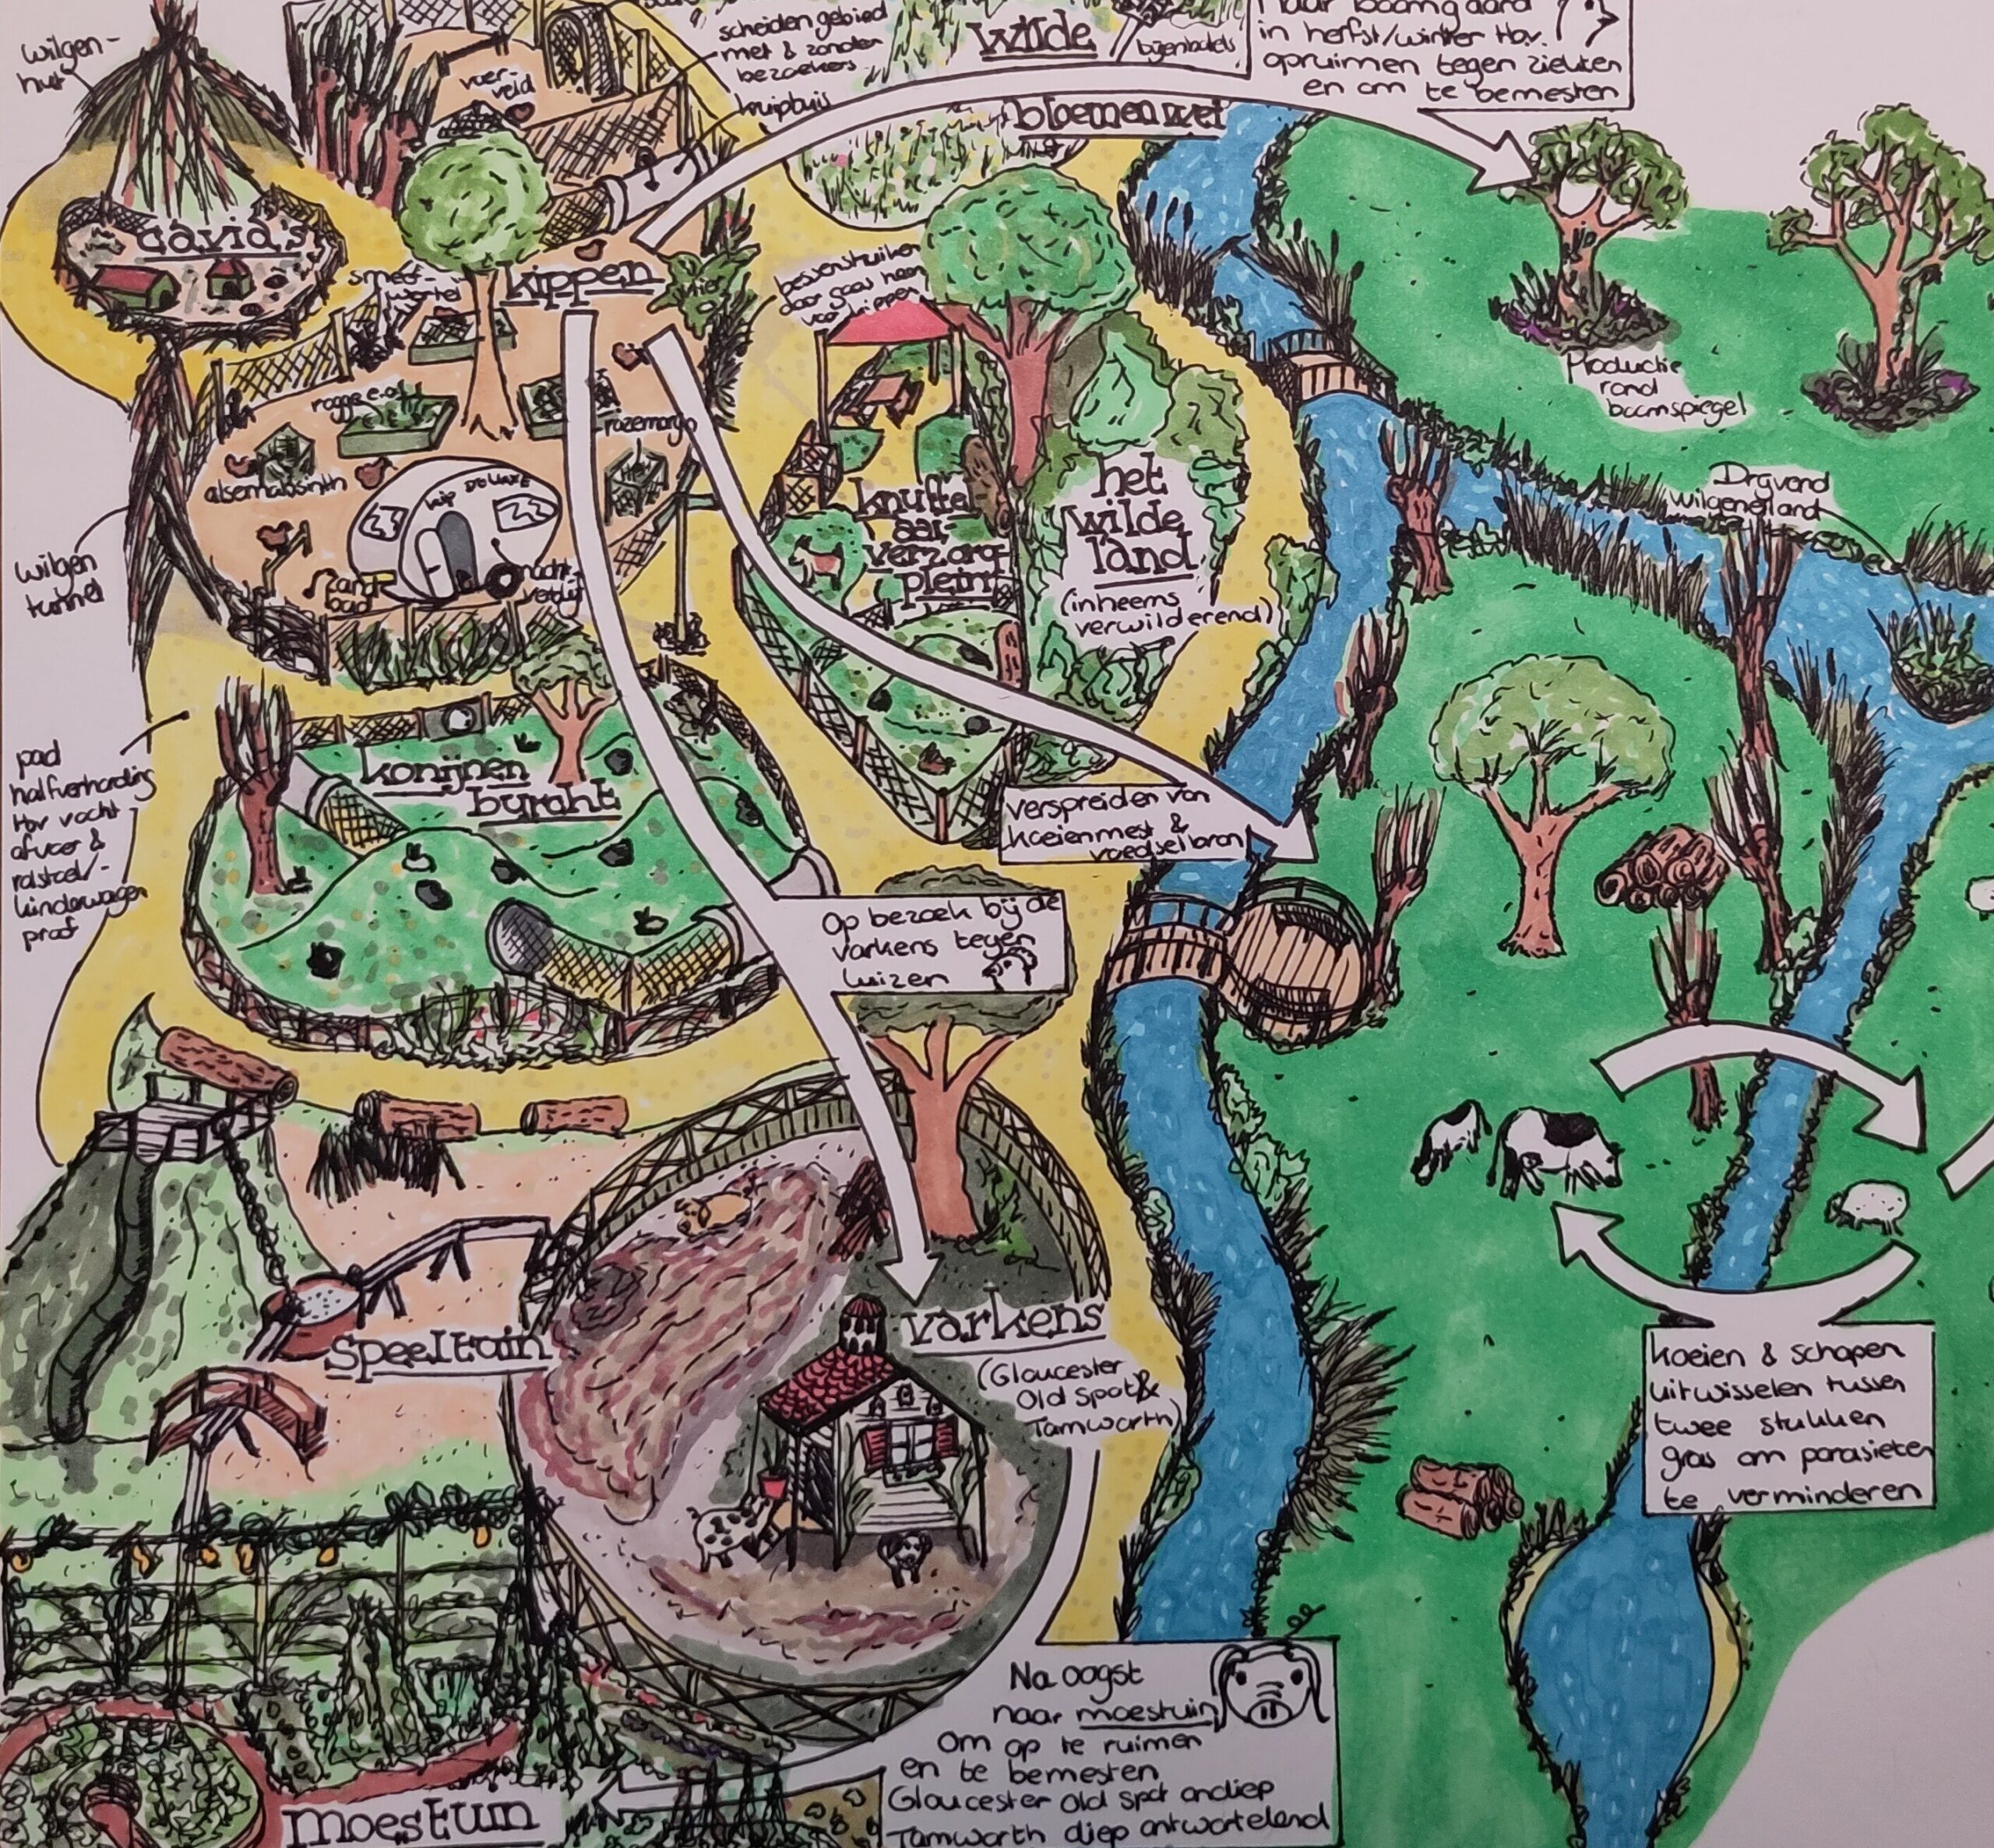 wilgen-
hut
scheiden gebied
met & zonder
bezoekers
kruipbuis
voer-
veld
wilde
bijenhotels
bloemenwei
naar boomgaard
in herfst/winter tbv.
opruimen tegen ziekten
en om te bemesten
cavia's
kippen
smeer-
wortel
bessenstruiken
daar gaas heen
voor kippen
rogge e.d.
rozemarijn
alsemabsinth
kip DELUXE
zand
bad
nacht
verblijf
wilgen
tunnel
knuffel
verzorg
plein
het
wilde
land
(inheems
verwilderend)
Productie
rond
boomspiegel
Drijvend
wilgeneiland
pad
halfverharding
tbv vocht
afvoer &
rolstoel/-
kinderwagen
proof
konijnen
burcht
verspreiden van
koeienmest &
voedselbron
Op bezoek bij de
varkens tegen
luizen
speeltuin
varkens
(Gloucester
Old Spot &
Tamworth)
koeien & schapen
uitwisselen tussen
twee stukken
gras om parasieten
te verminderen
Na oogst
naar moestuin
om op te ruimen
en te bemesten
Gloucester Old Spot ondiep
Tamworth diep ontwortelend
moestuin